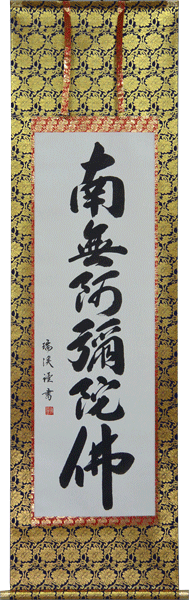 南無阿彌陀佛
瑞溪謹書